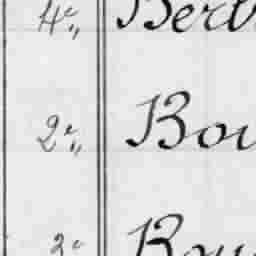 4e„ Bert
2e„ Bou
3e Bou